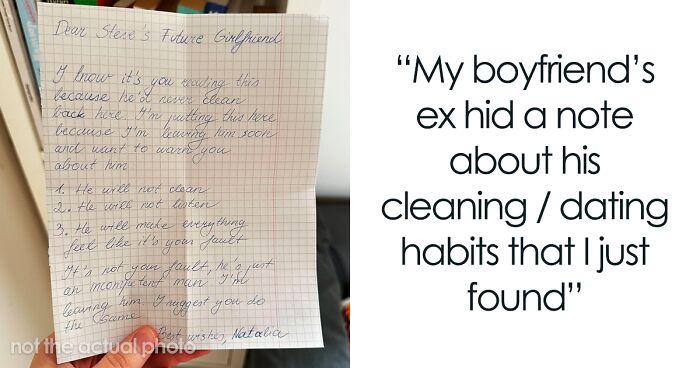 Dear Steve's Future Girlfriend
I know it's you reading this
because he'd never clean
back here. I'm putting this here
because I'm leaving him soon
and want to warn you
about him
1. He will not clean
2. He will not listen
3. He will make everything
feel like it's your fault
It's not your fault, he's just
an incompetent man I'm
leaving him. I suggest you do
the same
Best wishes, Natalia
not the actual photo
“My boyfriend’s
ex hid a note
about his
cleaning / dating
habits that I just
found”